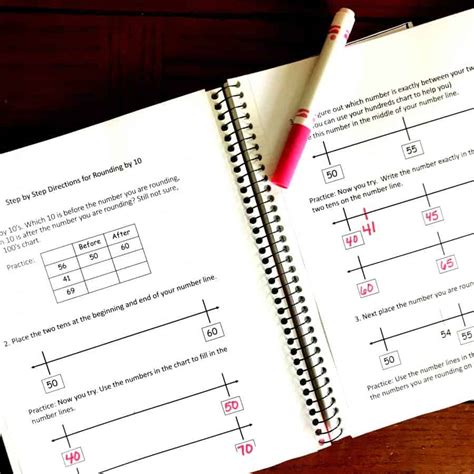 Step by Step Directions for Rounding by 10
by 10's. Which 10 is before the number you are rounding,
10 is after the number you are rounding? Still not sure,
100's chart.
Practice:
Before After
56 50 60
41
69
2. Place the two tens at the beginning and end of your number line.
50 60
Practice: Now you try. Use the numbers in the chart to fill in the
number lines.
40 50
70
figure out which number is exactly between your two
you can use your hundreds chart to help you)
this number in the middle of your number line.
50 55
Practice: Now you try. Write the number exactly in th
two tens on the number line.
40 41 45
60 65
3. Next place the number you are round
50 54 55
Practice: Use the number lines in th
the numbers you are rounding on